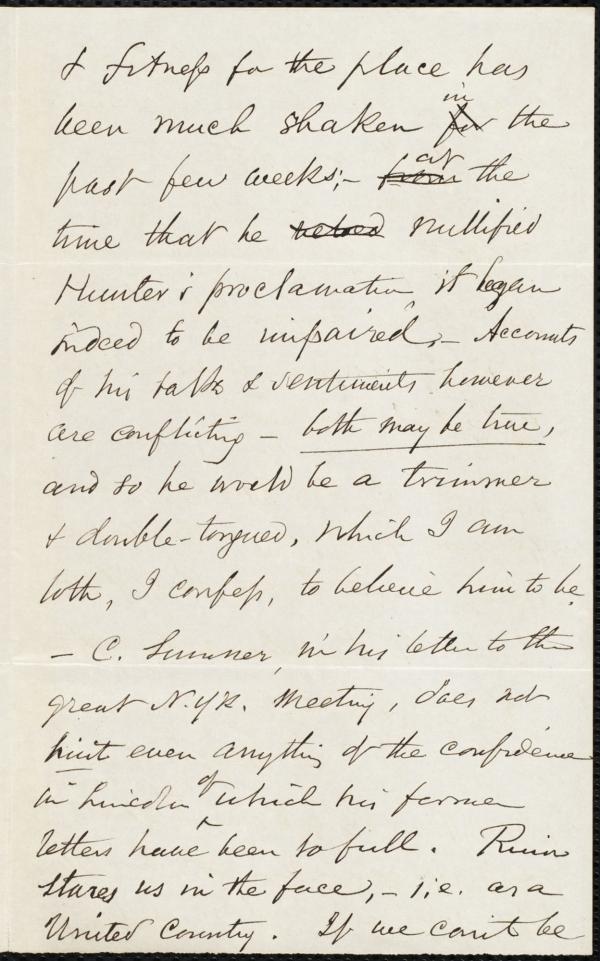 & fitness for the place has
been much shaken in the
past few weeks;– at the
time that he nullified
Hunter's proclamation, it began
indeed to be impaired,– Accounts
of his talks & sentiments however
are conflicting – both may be true,
and so he would be a trimmer
& double-tongued, which I am
loth, I confess, to believe him to be
– C. Sumner, in his letter to the
great N.Yk. meeting, does not
hint even anything of the confidence
in Lincoln of which his former
letters have been so full. Ruin
stares us in the face,– i.e. as a
United Country. If we can't be